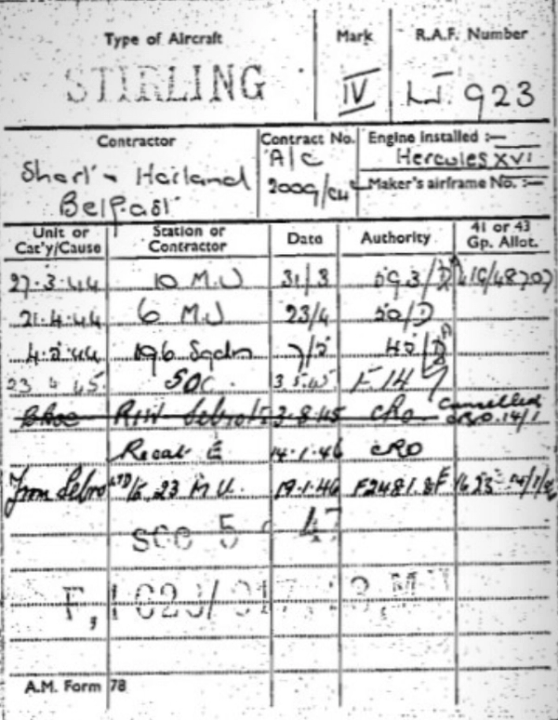 Type of Aircraft Mark R.A.F. Number
STIRLING IV LJ 923
Contractor Contract No. Engine Installed :—
Short & Harland A/C Hercules XVI
Belfast 2009/C4 Maker's airframe No. :—
Unit or Cat'y/Cause Station or Contractor Date Authority 41 or 43 Gp. Allot.
27.3.44 10 M.U 31/3 41G/48707
21.4.44 6 M.U 23/4 50/D
4.5.44 196 Sqdn 7/5 45/D
23 4 45. SOC. 3.5.45 F.14
RIW Sebro 3-8-45 CRO. Cancelled CRO.14/1
Recat E 14.1.46 CRO
From Sebro LTD 23 M.U. 19.1.46 F2481.8F
SOC 5 47
A.M. Form 78